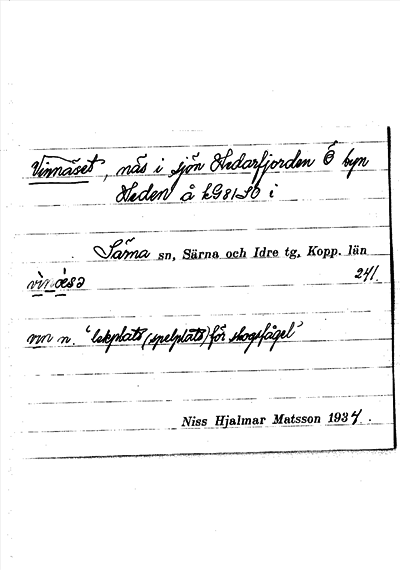 Vinnäset, näs i sjön Hedarfjorden Ö byn
Heden å kG81SO i
Särna sn, Särna och Idre tg, Kopp. län
241.
vin n. 'lekplats (spelplats) för skogsfågel'
Niss Hjalmar Matsson 1934.